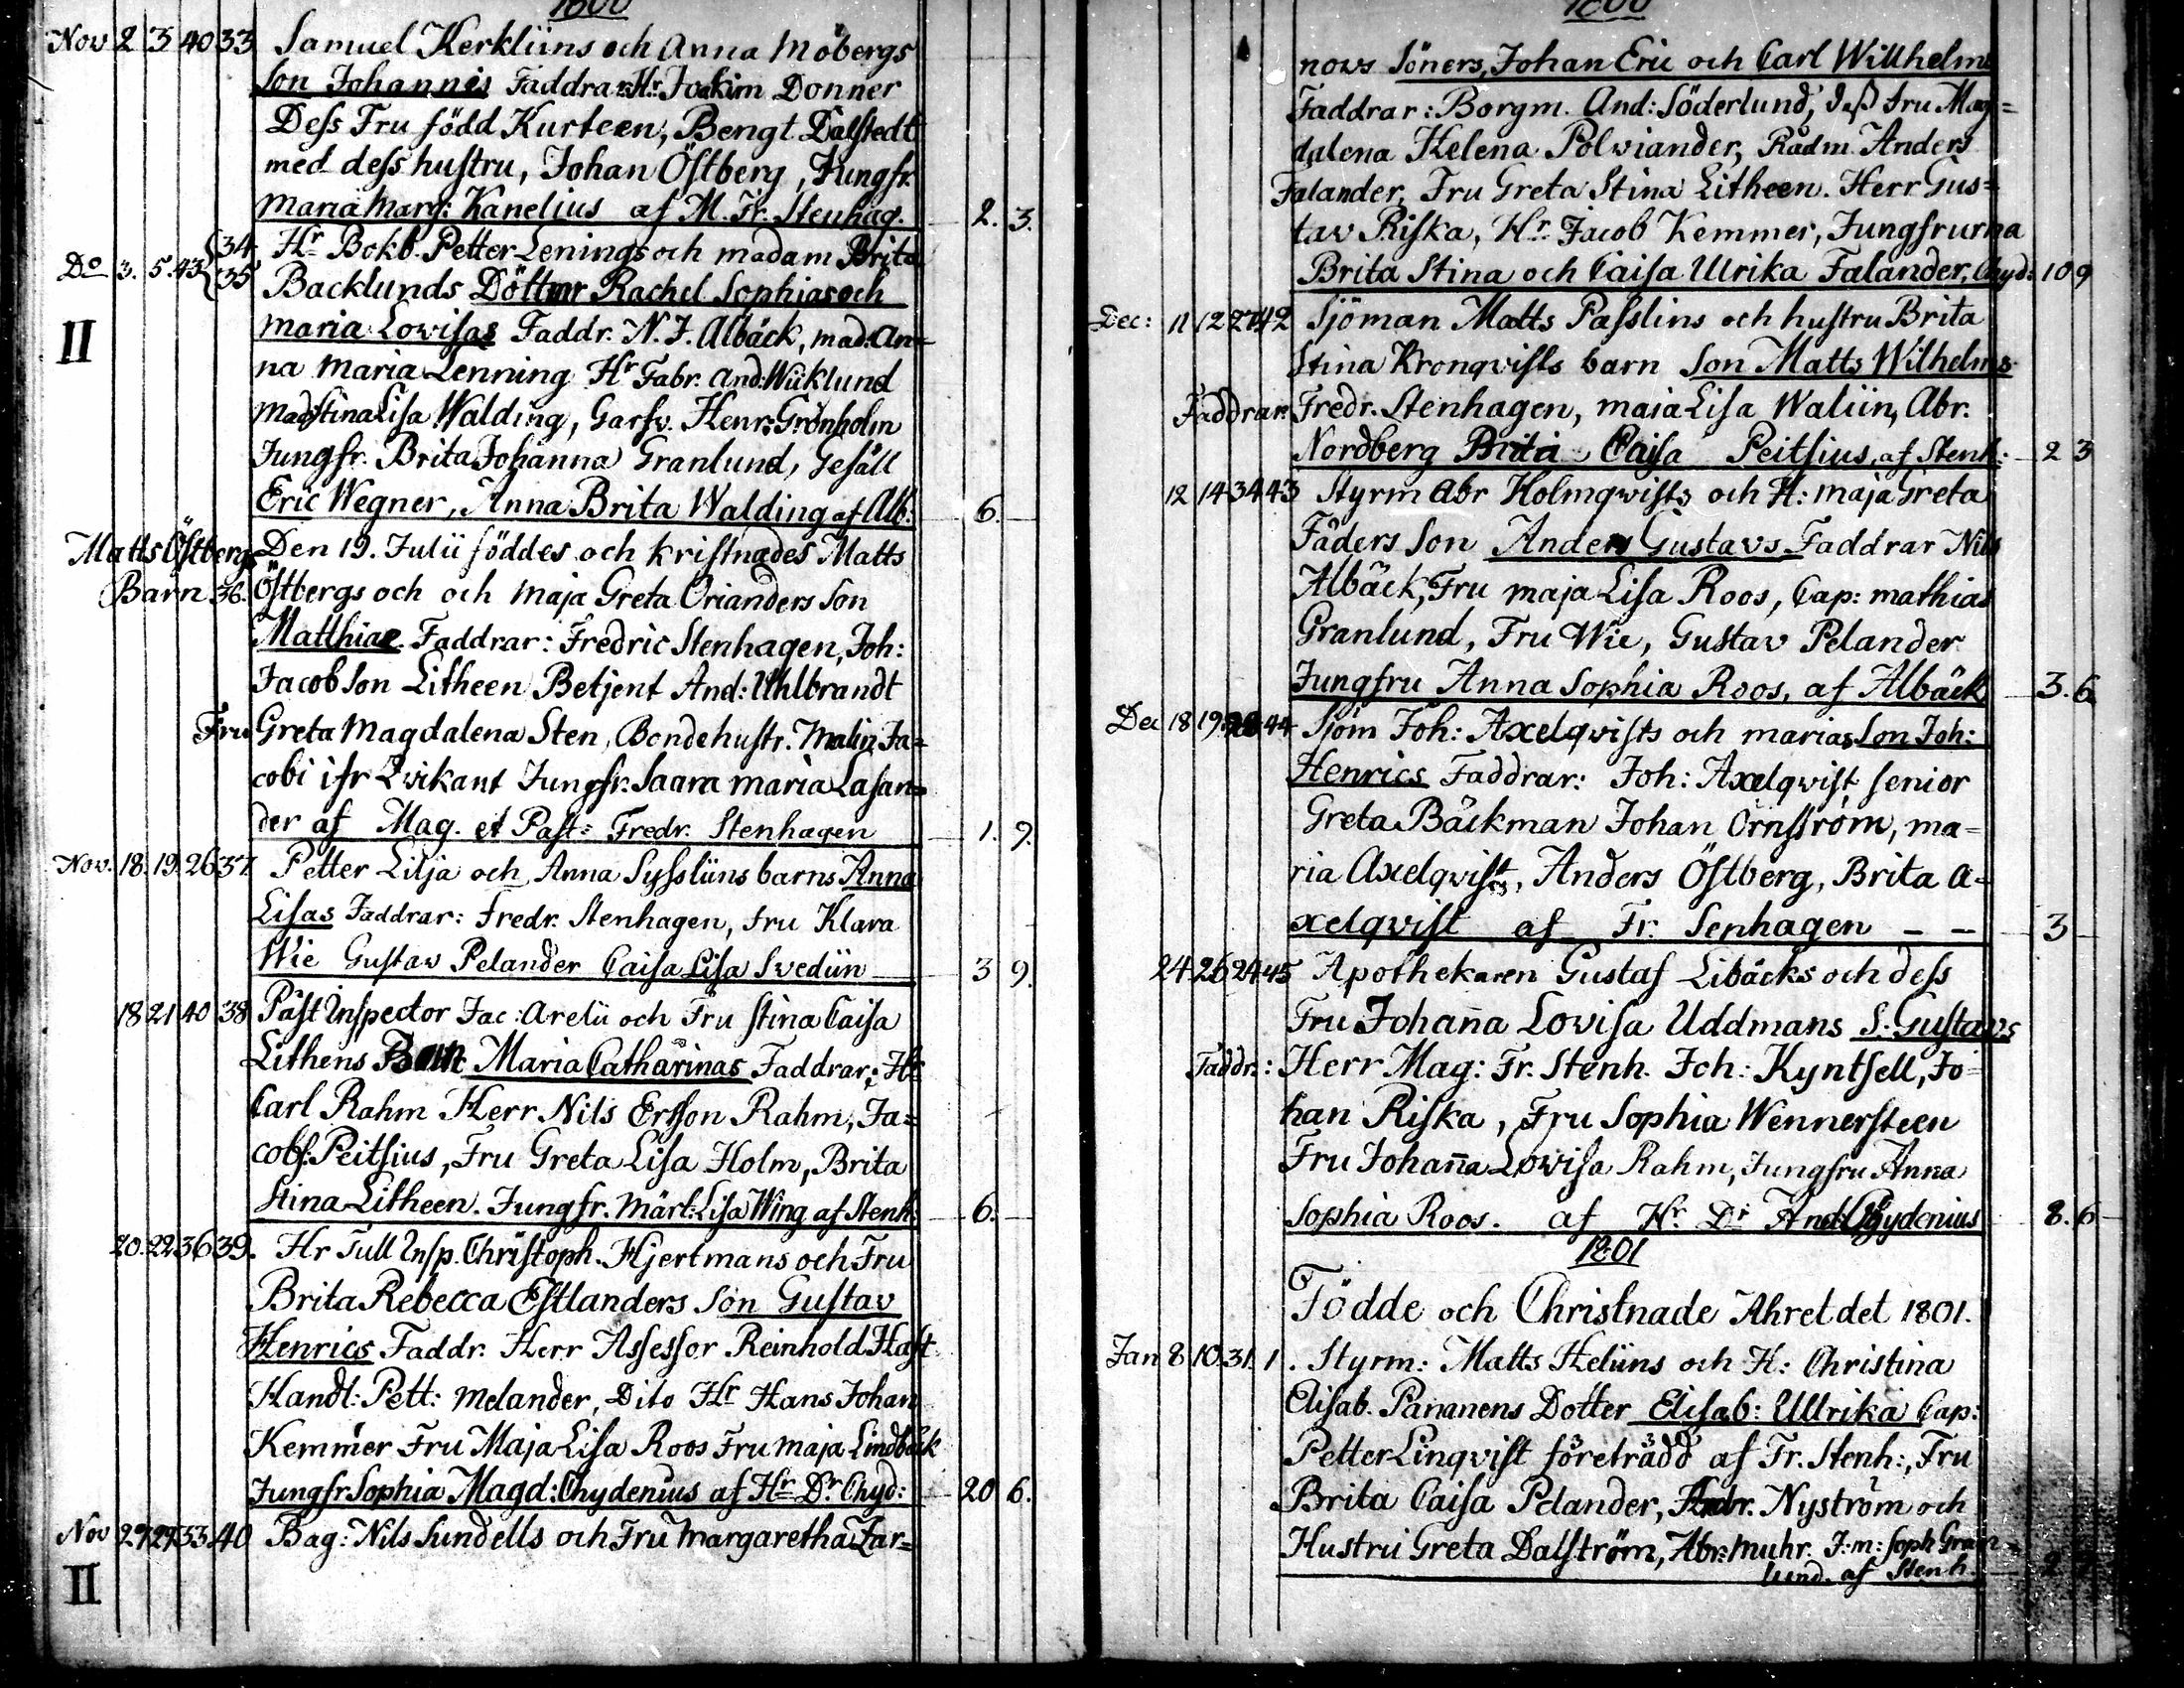 1800
Nov 2 3 40 33 Samuel Kerkliins och Anna Möbergs
Son Johannis Faddrar: Hr. Joakim Donner
Dess Fru född Kurteen, Bengt Dalstedt
med dess hustru, Johan Östberg, Jungfr.
Maria Marg: Kanelius af M. Fr. Stenhag. 2. 3.
Do 3. 5. 43 {34 35 Hr Bokb. Petter Lenings och madam Brita
Backlunds Döttrar Rachel Sophias och
II Maria Lovisas Faddr. N. J. Albäck, mad: An=
na Maria Lenning Hr Fabr. And: Wiklund
Mad Stina Lisa Walding, Garfv. Henr: Grönholm
Jungfr. Brita Johanna Granlund, Gesäll
Eric Wegner, Anna Brita Walding af Alb: 6. —
Matts Östbergs Den 19. Julii föddes och kristnades Matts
Barn 36. Östbergs och och Maja Greta Orianders Son
Matthiae Faddrar: Fredric Stenhagen, Joh:
Jacob Son Litheen Betjent And: Uhlbrandt
Fru Greta Magdalena Sten, Bondehustr. Malin Ja=
cobi ifr Qvikant Jungfr. Saara Maria Lasan=
der af Mag. et Past: Fredr. Stenhagen 1. 9.
Nov. 18. 19. 26 37 Petter Lilja och Anna Syssliins barns Anna
Lisas Faddrar: Fredr. Stenhagen, Fru Klara
Wie Gustav Pelander Caisa Lisa Svediin 3 9.
18 21 40 38 Påst Inspector Jac: Arelii och Fru Stina Caisa
Lithens Barn Maria Catharinas Faddrar: Hr
Carl Rahm Herr Nils Ersson Rahm, Ja=
cobs: Peitsius, Fru Greta Lisa Holm, Brita
Stina Litheen. Jungfr. Märt: Lisa Wing af Stenh: 6. —
20. 22 36 39. Hr Tull Insp. Christoph. Hjertmans och Fru
Brita Rebecca Estlanders Son Gustav
Henrics Faddr. Herr Assessor Reinhold Hast
Handl: Pett: Melander, Dito Hr Hans Johan
Kemmer Fru Maja Lisa Roos Fru Maja Lindbäck
Jungfr Sophia Magd: Chydenius af Hr Dr Chyd: 20 6.
Nov 27 29 33 40 Bag: Nils Sundells och Fru Margaretha Zar=
II
1800
nows Söners, Johan Eric och Carl Willhelms
Faddrar: Borgm. And: Söderlund, dess Fru Mag=
dalena Helena Polviander, Rådm. Anders
Falander, Fru Greta Stina Litheen. Herr Gus=
tav Riska, Hr Jacob Kemmer, Jungfrurna
Brita Stina och Caisa Ulrika Falander, Chyd: 10 9
Dec: 11 12 27 42 Sjöman Matts Passlins och hustru Brita
Stina Kronqvists barn Son Matts Wilhelms
Faddrar: Fredr. Stenhagen, Maia Lisa Waliin, Abr.
Nordberg Brita Caisa Peitsius, af Stenh: 2 3
12 14 34 43 Styrm Abr Holmqvists och H: Maja Greta
Fåders Son Anders Gustavs Faddrar Nils
Albäck, Fru Maja Lisa Roos, Cap: Mathias
Granlund, Fru Wie, Gustav Pelander
Jungfru Anna Sophia Roos, af Albäck 3. 6
Dec 18 19 44 Sjöm Joh: Axelqvists och Marias Son Joh:
Henrics Faddrar: Joh: Axelqvist senior
Greta Bäckman Johan Örnström, Ma=
ria Axelqvist, Anders Östberg, Brita A=
xelqvist af Fr. Senhagen – – 3 –
24 26 24 45 Apothekaren Gustaf Libäcks och dess
Fru Johanna Lovisa Uddmans S. Gustavs
Faddr.: Herr Mag: Fr. Stenh. Joh: Kyntsell, Jo=
han Riska, Fru Sophia Wennersteen
Fru Johanna Lovisa Rahm, Jungfru Anna
Sophia Roos. af Hr Dr And Chydenius 8. 6
1801
Födde och Christnade Ahret det 1801.
Jan 8 10. 31. 1. Styrm: Matts Heliins och H: Christina
Elisab. Pananens Dotter Elisab: Ullrika Cap:
Petter Linqvist företrädd af Fr. Stenh:, Fru
Brita Caisa Pelander, Andr. Nyström och
Hustru Greta Dalström, Abr: Muhr. J: m: Soph Gran=
lund. af Stenh. 2